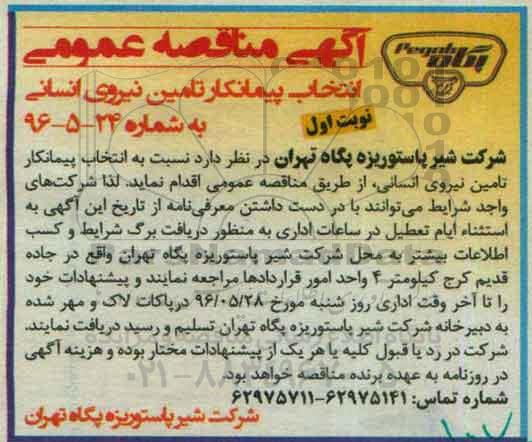 آگهی مناقصه عمومی
Pegah
پگاه
انتخاب پیمانکار تامین نیروی انسانی
به شماره ۲۴-۵-۹۶
نوبت اول
شرکت شیر پاستوریزه پگاه تهران در نظر دارد نسبت به انتخاب پیمانکار
تامین نیروی انسانی، از طریق مناقصه عمومی اقدام نماید. لذا شرکت‌های
واجد شرایط می‌توانند با در دست داشتن معرفی‌نامه از تاریخ این آگهی به
استثناء ایام تعطیل در ساعات اداری به منظور دریافت برگ شرایط و کسب
اطلاعات بیشتر به محل شرکت شیر پاستوریزه پگاه تهران واقع در جاده
قدیم کرج کیلومتر ۴ واحد امور قراردادها مراجعه نمایند و پیشنهادات خود
را تا آخر وقت اداری روز شنبه مورخ ۹۶/۰۵/۲۸ درپاکات لاک و مهر شده
به دبیرخانه شرکت شیر پاستوریزه پگاه تهران تسلیم و رسید دریافت نمایند.
شرکت در رد یا قبول کلیه یا هر یک از پیشنهادات مختار بوده و هزینه آگهی
در روزنامه به عهده برنده مناقصه خواهد بود.
شماره تماس: ۶۲۹۷۵۱۴۱-۶۲۹۷۵۷۱۱
شرکت شیر پاستوریزه پگاه تهران